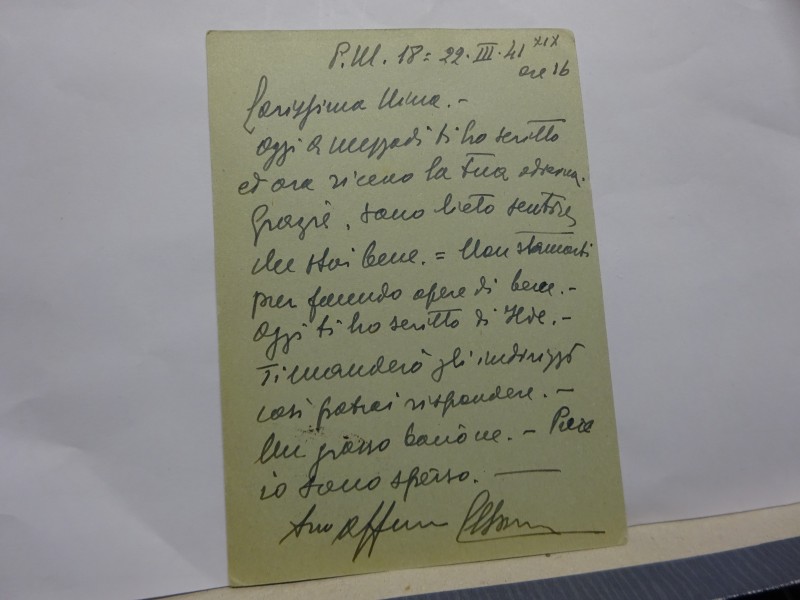 P.M. 18 = 22. III. 41 XIX
ore 16
Carissima Nina. -
Oggi a mezzadì ti ho scritto
ed ora ricevo la tua
Grazie, sono lieto sentire
che stai bene. = Non stancarti
pur facendo opere di bene. -
Oggi ti ho scritto di -
Ti manderò gli indirizzi
così potrai rispondere. -
Un grosso bacione. -
io sono spesso.
tuo affmo